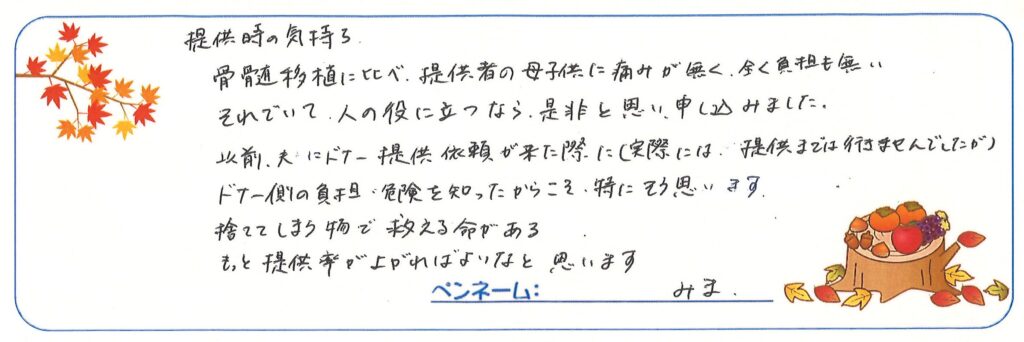 提供時の気持ち
骨髄移植に比べ、提供者の母子供に痛みが無く、全く負担も無い
それでいて、人の役に立つなら、是非と思い、申し込みました。
以前、夫にドナー提供依頼が来た際に(実際には、提供までは行きませんでしたが)
ドナー側の負担・危険を知ったからこそ、特にそう思います。
捨ててしまう物で救える命がある
もっと提供率が上がればよいなと思います
ペンネーム: みま.